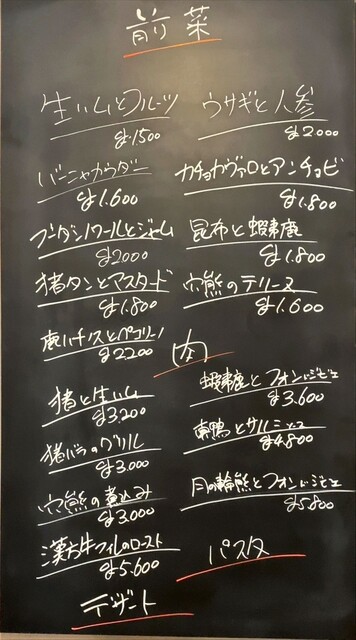 前菜
生ハムとフルーツ
¥1,500
バーニャカウダー
¥1,600
ブーダンノワールとジャム
¥2000
猪タンとマスタード
¥1,800
鹿ハチノスとペコリーノ
¥2200
ウサギと人参
¥2000
カチョカヴァロとアンチョビ
¥1,800
昆布と蝦夷鹿
¥1,800
穴熊のテリーヌ
¥1,600
肉
猪と生ハム
¥3,200
猪バラのグリル
¥3,000
穴熊の煮込み
¥3,000
漢方牛フィレのロースト
¥5,600
蝦夷鹿とフォンドジビエ
¥3,600
真鴨とサルミソース
¥4,800
月の輪熊とフォンドジビエ
¥5,800
パスタ
デザート